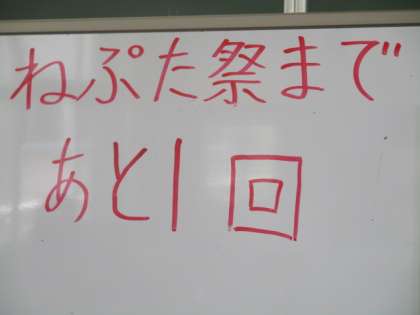 ねぷた祭まで
あと1回